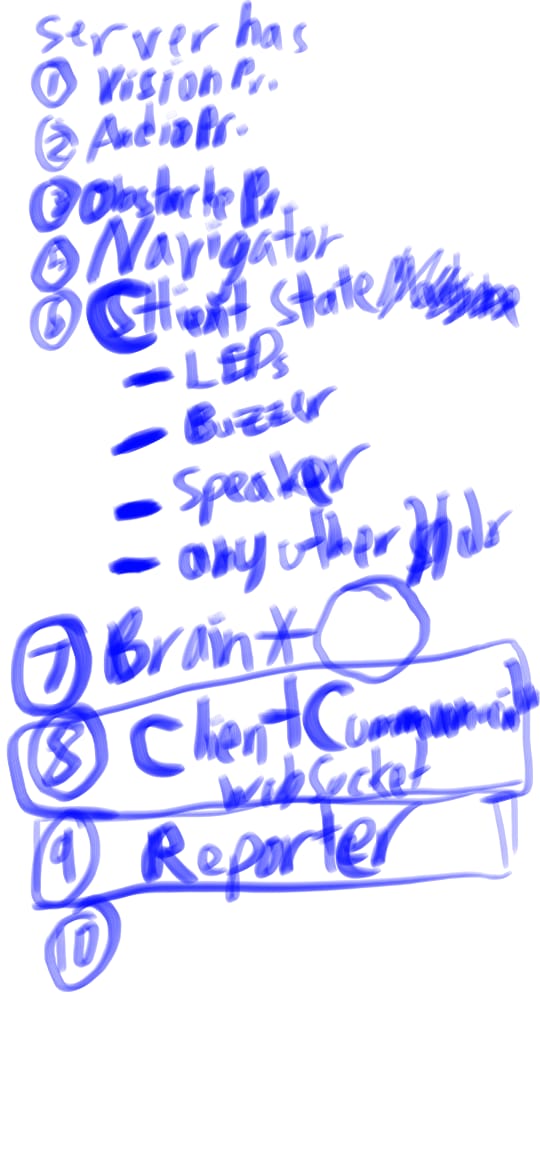 Server has
① Vision Pr.
② Audio Pr.
③ Obstacle Pr.
⑤ Navigator
⑥ Client State
- LEDs
- Buzzer
- Speaker
- any other
⑦ Brain
⑧ Client
WebSocket
⑨ Reporter
⑩